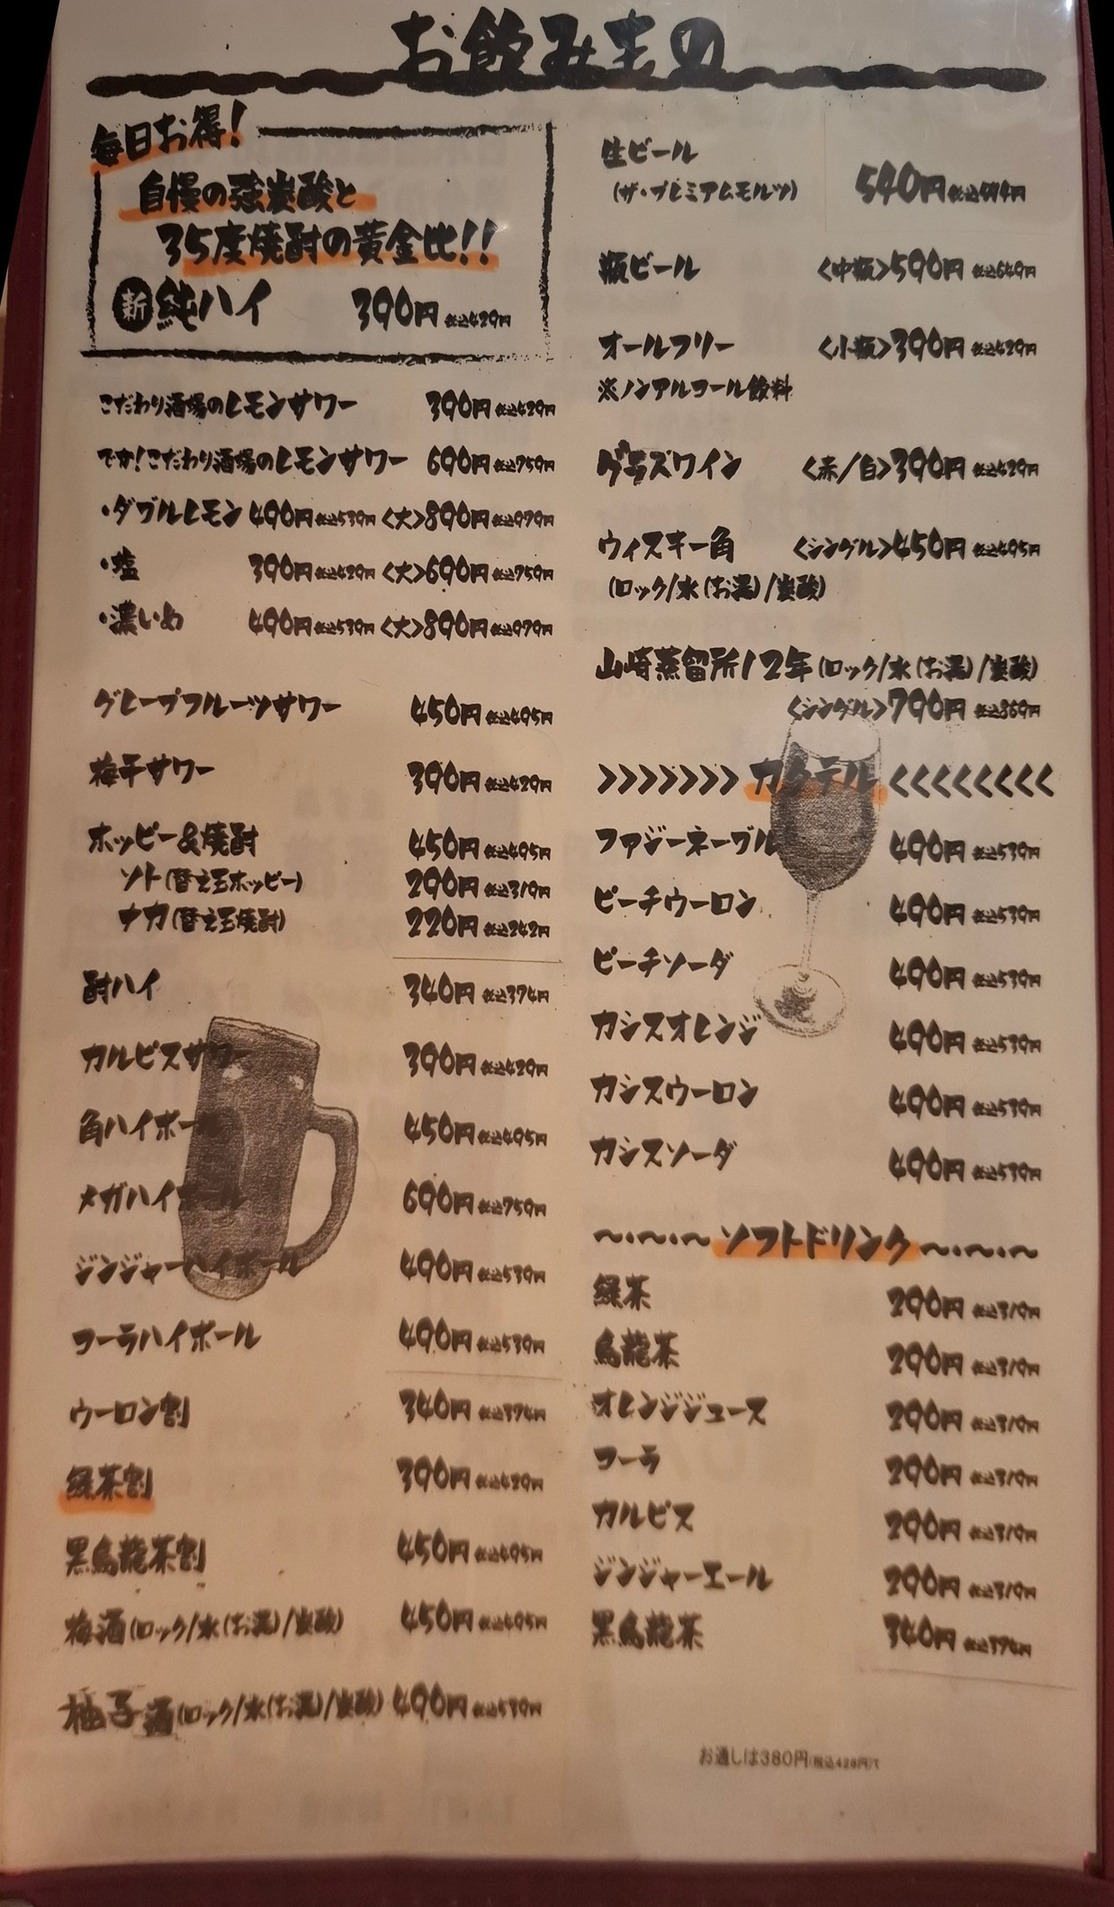 お飲みもの
毎日お得!
自慢の強炭酸と
35度焼酎の黄金比!!
新 純ハイ 390円 税込429円
こだわり酒場のレモンサワー 390円 税込429円
でか!こだわり酒場のレモンサワー 690円 税込759円
・ダブルレモン 490円 税込539円 <大>890円 税込979円
・塩 390円 税込429円 <大>690円 税込759円
・濃いめ 490円 税込539円 <大>890円 税込979円
グレープフルーツサワー 450円 税込495円
梅干サワー 390円 税込429円
ホッピー&焼酎 450円 税込495円
ソト(替え玉ホッピー) 290円 税込319円
ナカ(替え玉焼酎) 220円 税込242円
酎ハイ 340円 税込374円
カルピスサワー 390円 税込429円
角ハイボール 450円 税込495円
メガハイボール 690円 税込759円
ジンジャーハイボール 490円 税込539円
コーラハイボール 490円 税込539円
ウーロン割 340円 税込374円
緑茶割 390円 税込429円
黒烏龍茶割 450円 税込495円
梅酒(ロック/水(お湯)/炭酸) 450円 税込495円
柚子酒(ロック/水(お湯)/炭酸) 490円 税込539円
生ビール
(ザ・プレミアムモルツ) 540円 税込594円
瓶ビール <中瓶>590円 税込649円
オールフリー <小瓶>390円 税込429円
※ノンアルコール飲料
グラスワイン <赤/白>390円 税込429円
ウィスキー角 <シングル>450円 税込495円
(ロック/水(お湯)/炭酸)
山崎蒸留所12年(ロック/水(お湯)/炭酸)
<シングル>790円 税込869円
>>>>>>> カクテル <<<<<<<<
ファジーネーブル 490円 税込539円
ピーチウーロン 490円 税込539円
ピーチソーダ 490円 税込539円
カシスオレンジ 490円 税込539円
カシスウーロン 490円 税込539円
カシスソーダ 490円 税込539円
〜・〜・〜 ソフトドリンク 〜・〜・〜
緑茶 290円 税込319円
烏龍茶 290円 税込319円
オレンジジュース 290円 税込319円
コーラ 290円 税込319円
カルピス 290円 税込319円
ジンジャーエール 290円 税込319円
黒烏龍茶 340円 税込374円
お通しは380円